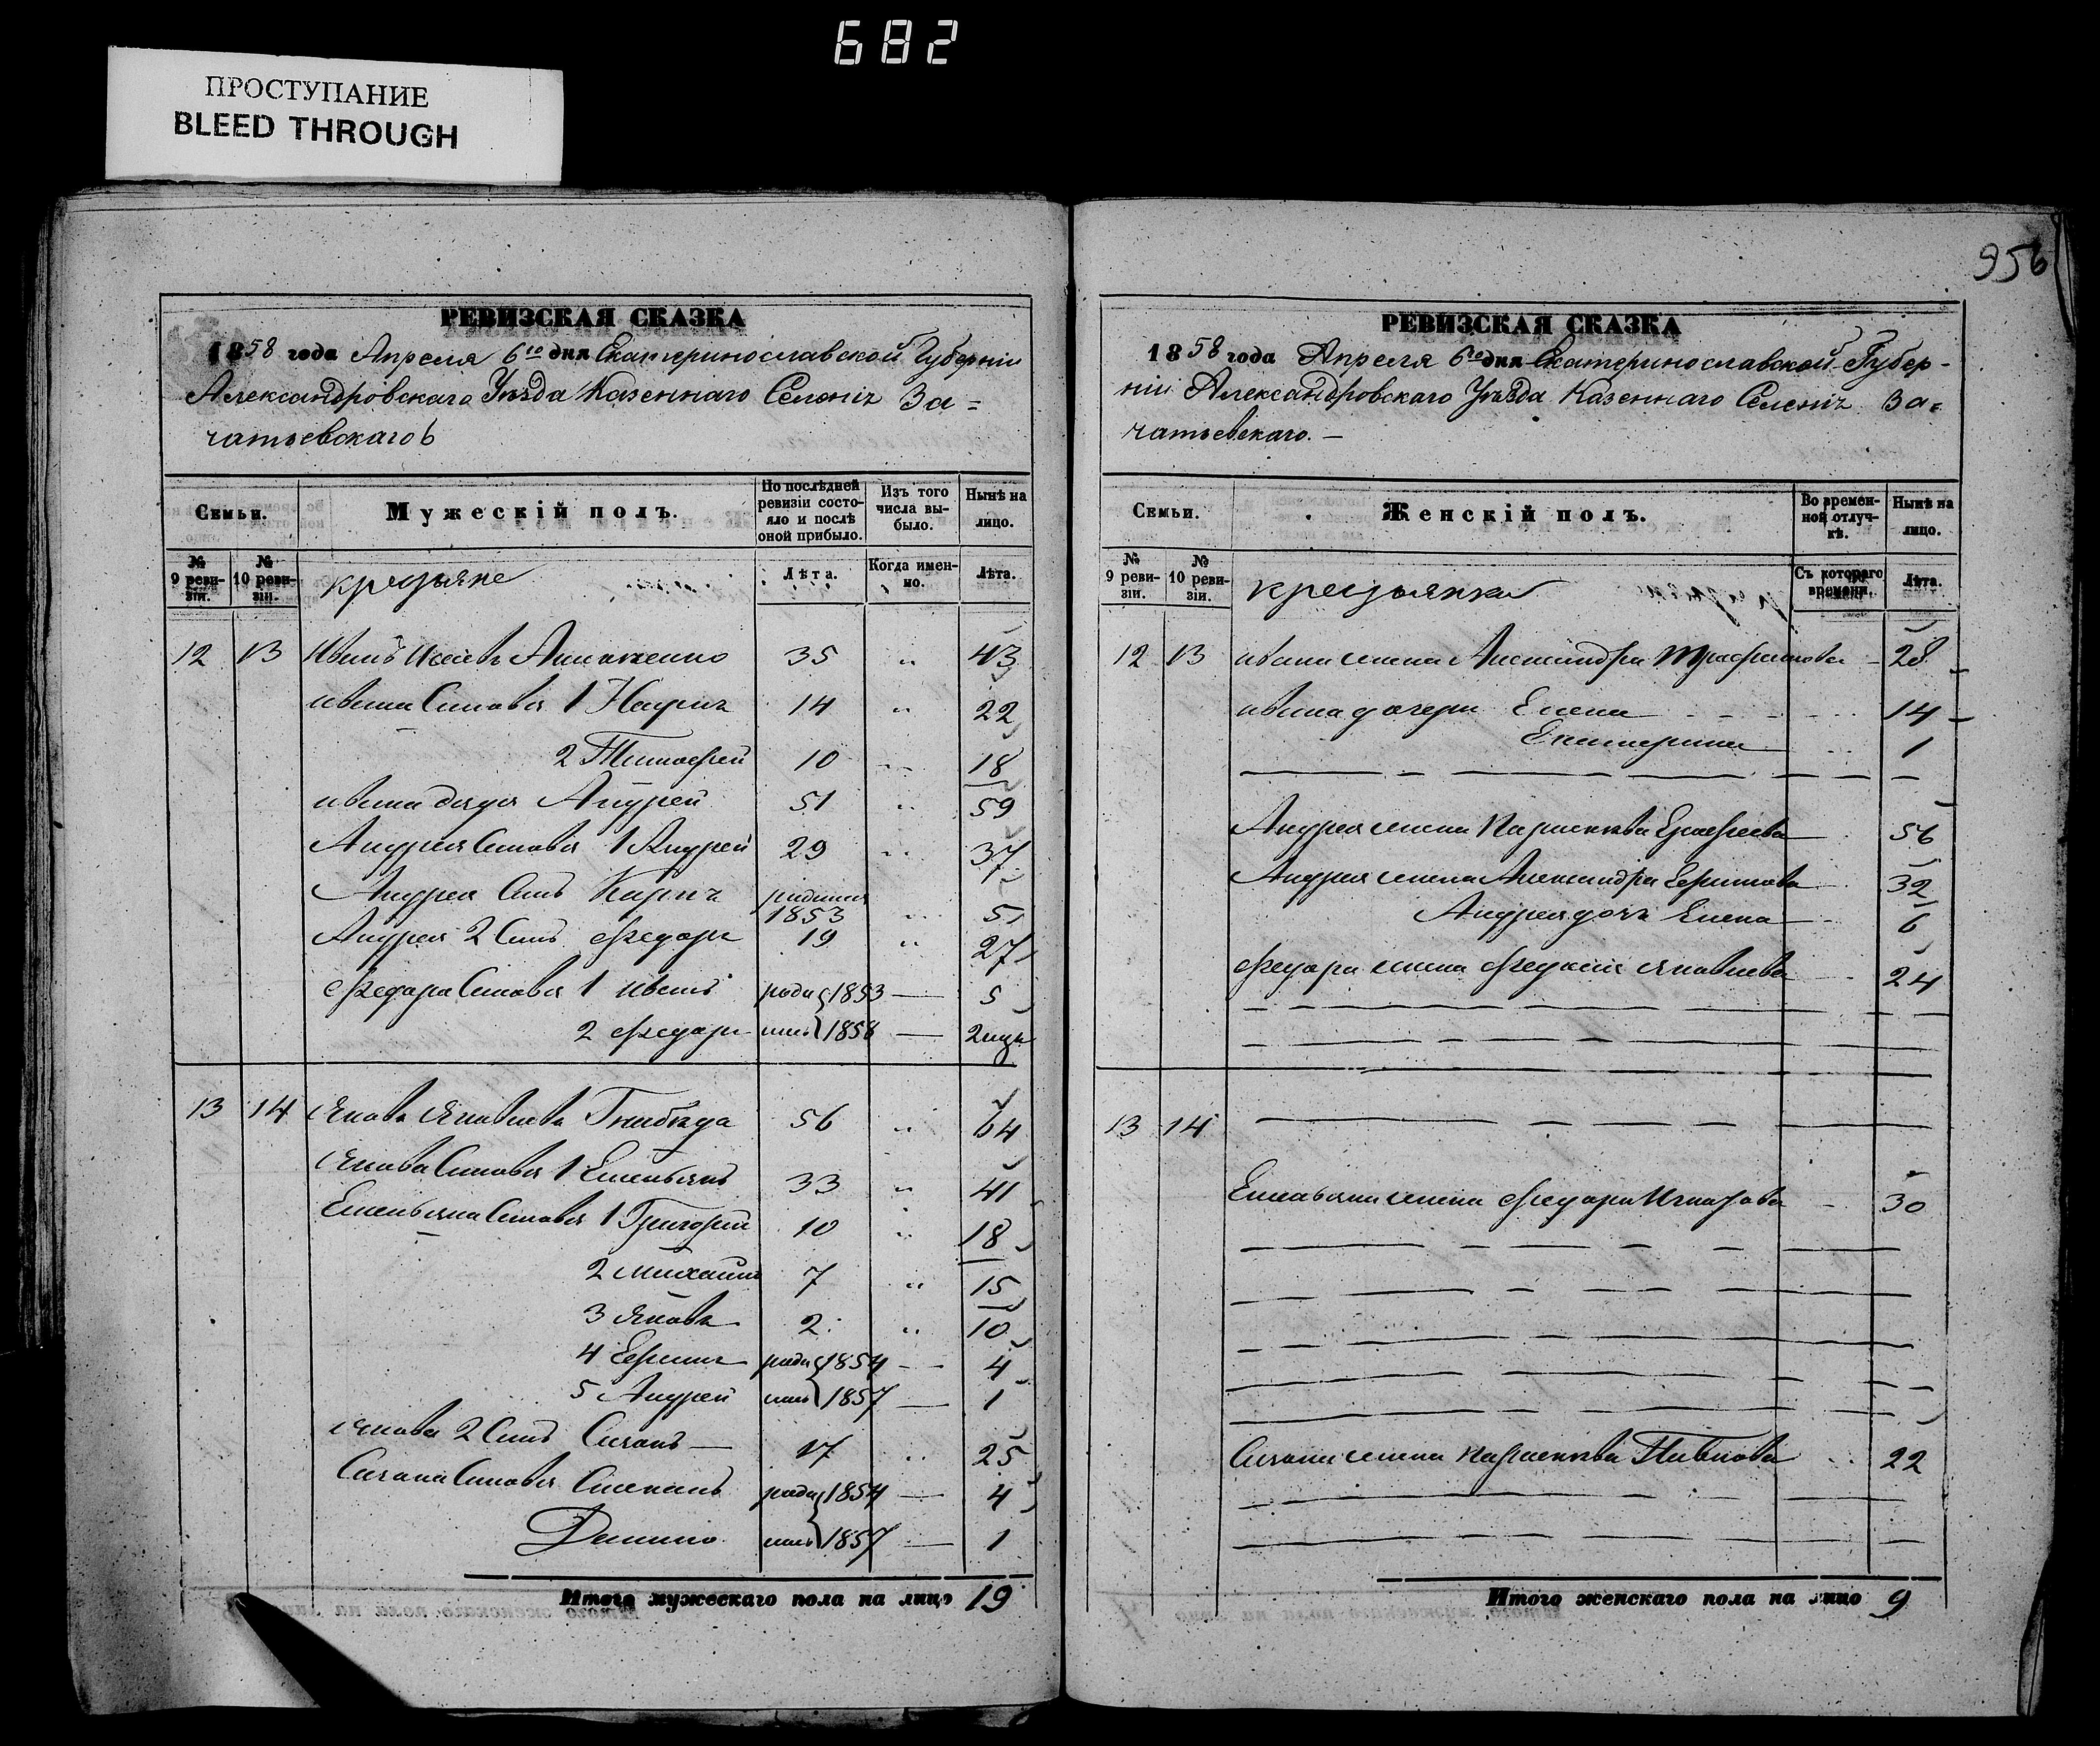 682
ПРОСТУПАНИЕ
BLEED THROUGH
РЕВИЗСКАЯ СКАЗКА
1858 года Апреля 6го дня Екатеринославской Губерніи
Александровскаго Уѣзда Казеннаго Селенія За=
чатьевскаго
Семьи.
Мужескій полъ.
По послѣдней ревизіи состояло и послѣ оной прибыло.
Изъ того числа выбыло.
Нынѣ на лицо.
№ 9 ревизіи.
№ 10 ревизіи.
крестьяне
Лѣта.
Когда именно.
Лѣта.
12 13 Иванъ 35 " 43
Ивана Сыновья 1 14 " 22
2 Тимофей 10 " 18
Ивана дядя Андрей 51 " 59
Андрея Сыновья 1 Андрей 29 " 37
Андрея Сынъ родился 1853 " 5
Андрея 2 Сынъ Федоръ 19 " 27
Федора Сыновья 1 Иванъ роди 1853 — 5
2 Федоръ лись 1858 — 2 мца
13 14 Яковъ Яковлевъ 56 " 64
Якова Сыновья 1 Емельянъ 33 " 41
Емельяна Сыновья 1 Григорій 10 " 18
2 Михайло 7 " 15
3 Яковъ 2 " 10
4 Ефимъ роди 1854 — 4
5 Андрей лись 1857 — 1
Якова 2 Сынъ 17 " 25
Сыновья Степанъ роди 1854 — 4
лись 1857 — 1
Итого мужескаго пола на лицо 19
956
РЕВИЗСКАЯ СКАЗКА
1858 года Апреля 6го дня Екатеринославской Губер-
ніи Александровскаго Уѣзда Казеннаго Селенія За=
чатьевскаго. —
Семьи.
Женскій полъ.
Во временной отлучкѣ.
Нынѣ на лицо.
№ 9 ревизіи.
№ 10 ревизіи.
крестьянки
Съ котораго времени.
Лѣта.
12 13 Ивана жена Александра Трофимова 28
Ивана дочери Елена 14
Екатерина 1
Андрея жена Парасковья Ерофеева 56
Андрея жена Александра Ефимова 32
Андрея дочь Елена 6
Федора жена Федосія Яковлева 24
13 14
Емельяна жена Федора Игнатова 30
жена Парасковья 22
Итого женскаго пола на лицо 9